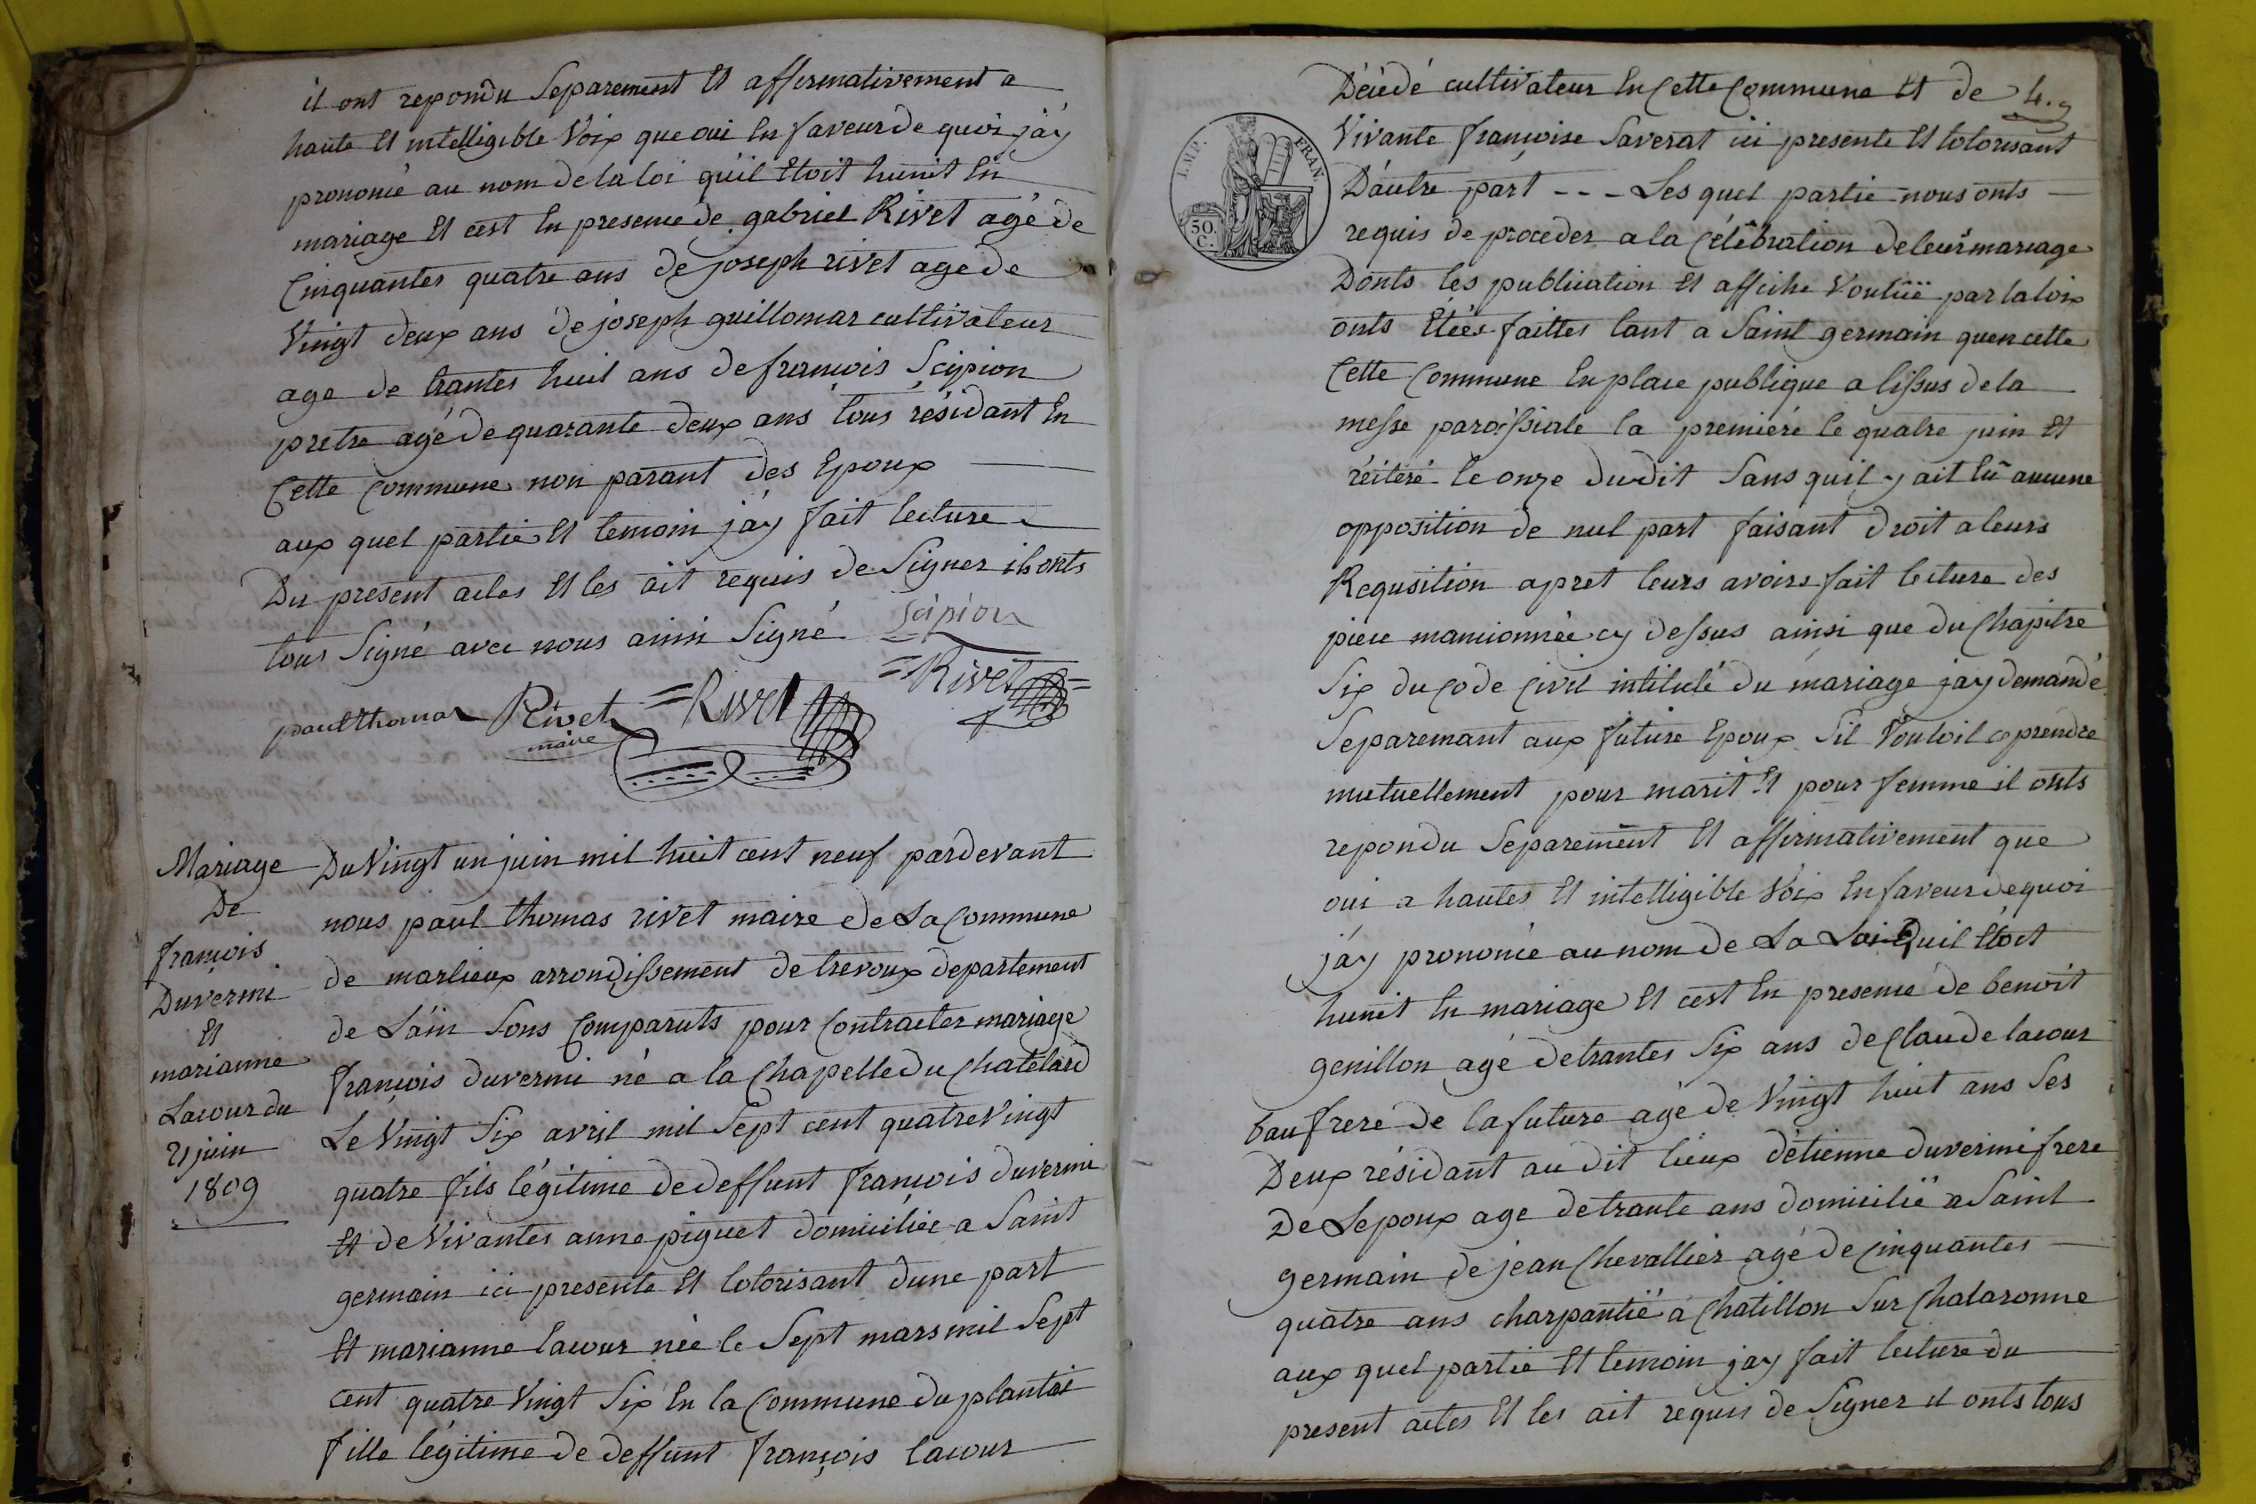 il ont repondu Separement Et affirmativement a
haute Et intelligible Voix que oui En faveur de quoi j'ay
prononcé au nom de la loi quil Etoit hunit En
mariage Et cest En presence de gabriel Rivet agé de
Cinquantes quatre ans de joseph rivet age de
Vingt deux ans de joseph guillomar cultivateur
age de trantes huit ans de françois Scipion
pretre agé de quarante deux ans tous résidant En
Cette Commune non parant des Epoux
aux quel partie Et temoin jay fait lecture
Du present actes Et les ait requis de Signer ils onts
tous Signé avec nous ainsi Signé Scipion
paul thomas Rivet =Rivet =Rivet=
maire
Mariage
De
françois
Duvermi
Et
marianne
Lacour du
21 juin
1809
Du Vingt un juin mil huit cent neuf pardevant
nous paul thomas rivet maire de La Commune
de marlieux arrondissement de trevoux departement
de L'ain Sons Comparuts pour Contracter mariage
françois duvermi né a la Chapelle du Chatelard
Le Vingt Six avril mil Sept cent quatre Vingt
quatre fils légitime de deffunt françois duvermi
Et de Vivantes anne piguet domiciliée a Saint
germain ici presente Et lotorisant dune part
Et marianne lacour née le Sept mars mil Sept
cent quatre Vingt Six En la Commune du plantai
fille légitime de deffunt françois lacour
4.
Décédé cultivateur En Cette Commune Et de
Vivante françoise Saverat ici presente Et lotorisant
D'autre part - - - Les quel partie nous onts
requis de proceder a la Célébration de leur mariage
Donts les publication Et affiche Voulüe par la loix
onts Etées faittes tant a Saint germain quen cette
Cette Commune En place publique a lissus de la
messe paroissiale la premiere le quatre juin Et
réitéré le onze dudit Sans quil y ait Eu aucune
opposition de nul part faisant droit a leurs
Requsition apret leurs avoirs fait lecture des
piece mancionnée cy dessus ainsi que du Chapitre
Six du Code Civil intitulé du mariage jay demandé
Separemant aux future Epoux Sil Vouloit ce prendre
mutuellement pour marit Et pour femme il onts
repondu Separement Et affirmativement que
oui a hautes Et intelligible Voix En faveur de quoi
j'ay prononcé au nom de La Loi Quil Etoit
hunit En mariage Et cest En presence de benoit
genillon agé de trantes Six ans de Claude lacour
baufrere de la future agé de Vingt huit ans Ses
Deux résidant au dit lieux détienne duvermi frere
De Lepoux age de trante ans domicilié a Saint
germain de jean Chevallier agé de Cinquantes
quatre ans charpantié a Chatillon Sur Chalaronne
aux quel partie Et temoin jay fait lecture du
present actes Et les ait requis de Signer il onts tous
IMP. FRAN.
50.
C.